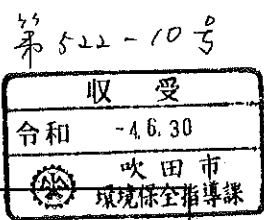 第522-10号
収受
令和 -4.6.30
吹田市
環境保全指導課